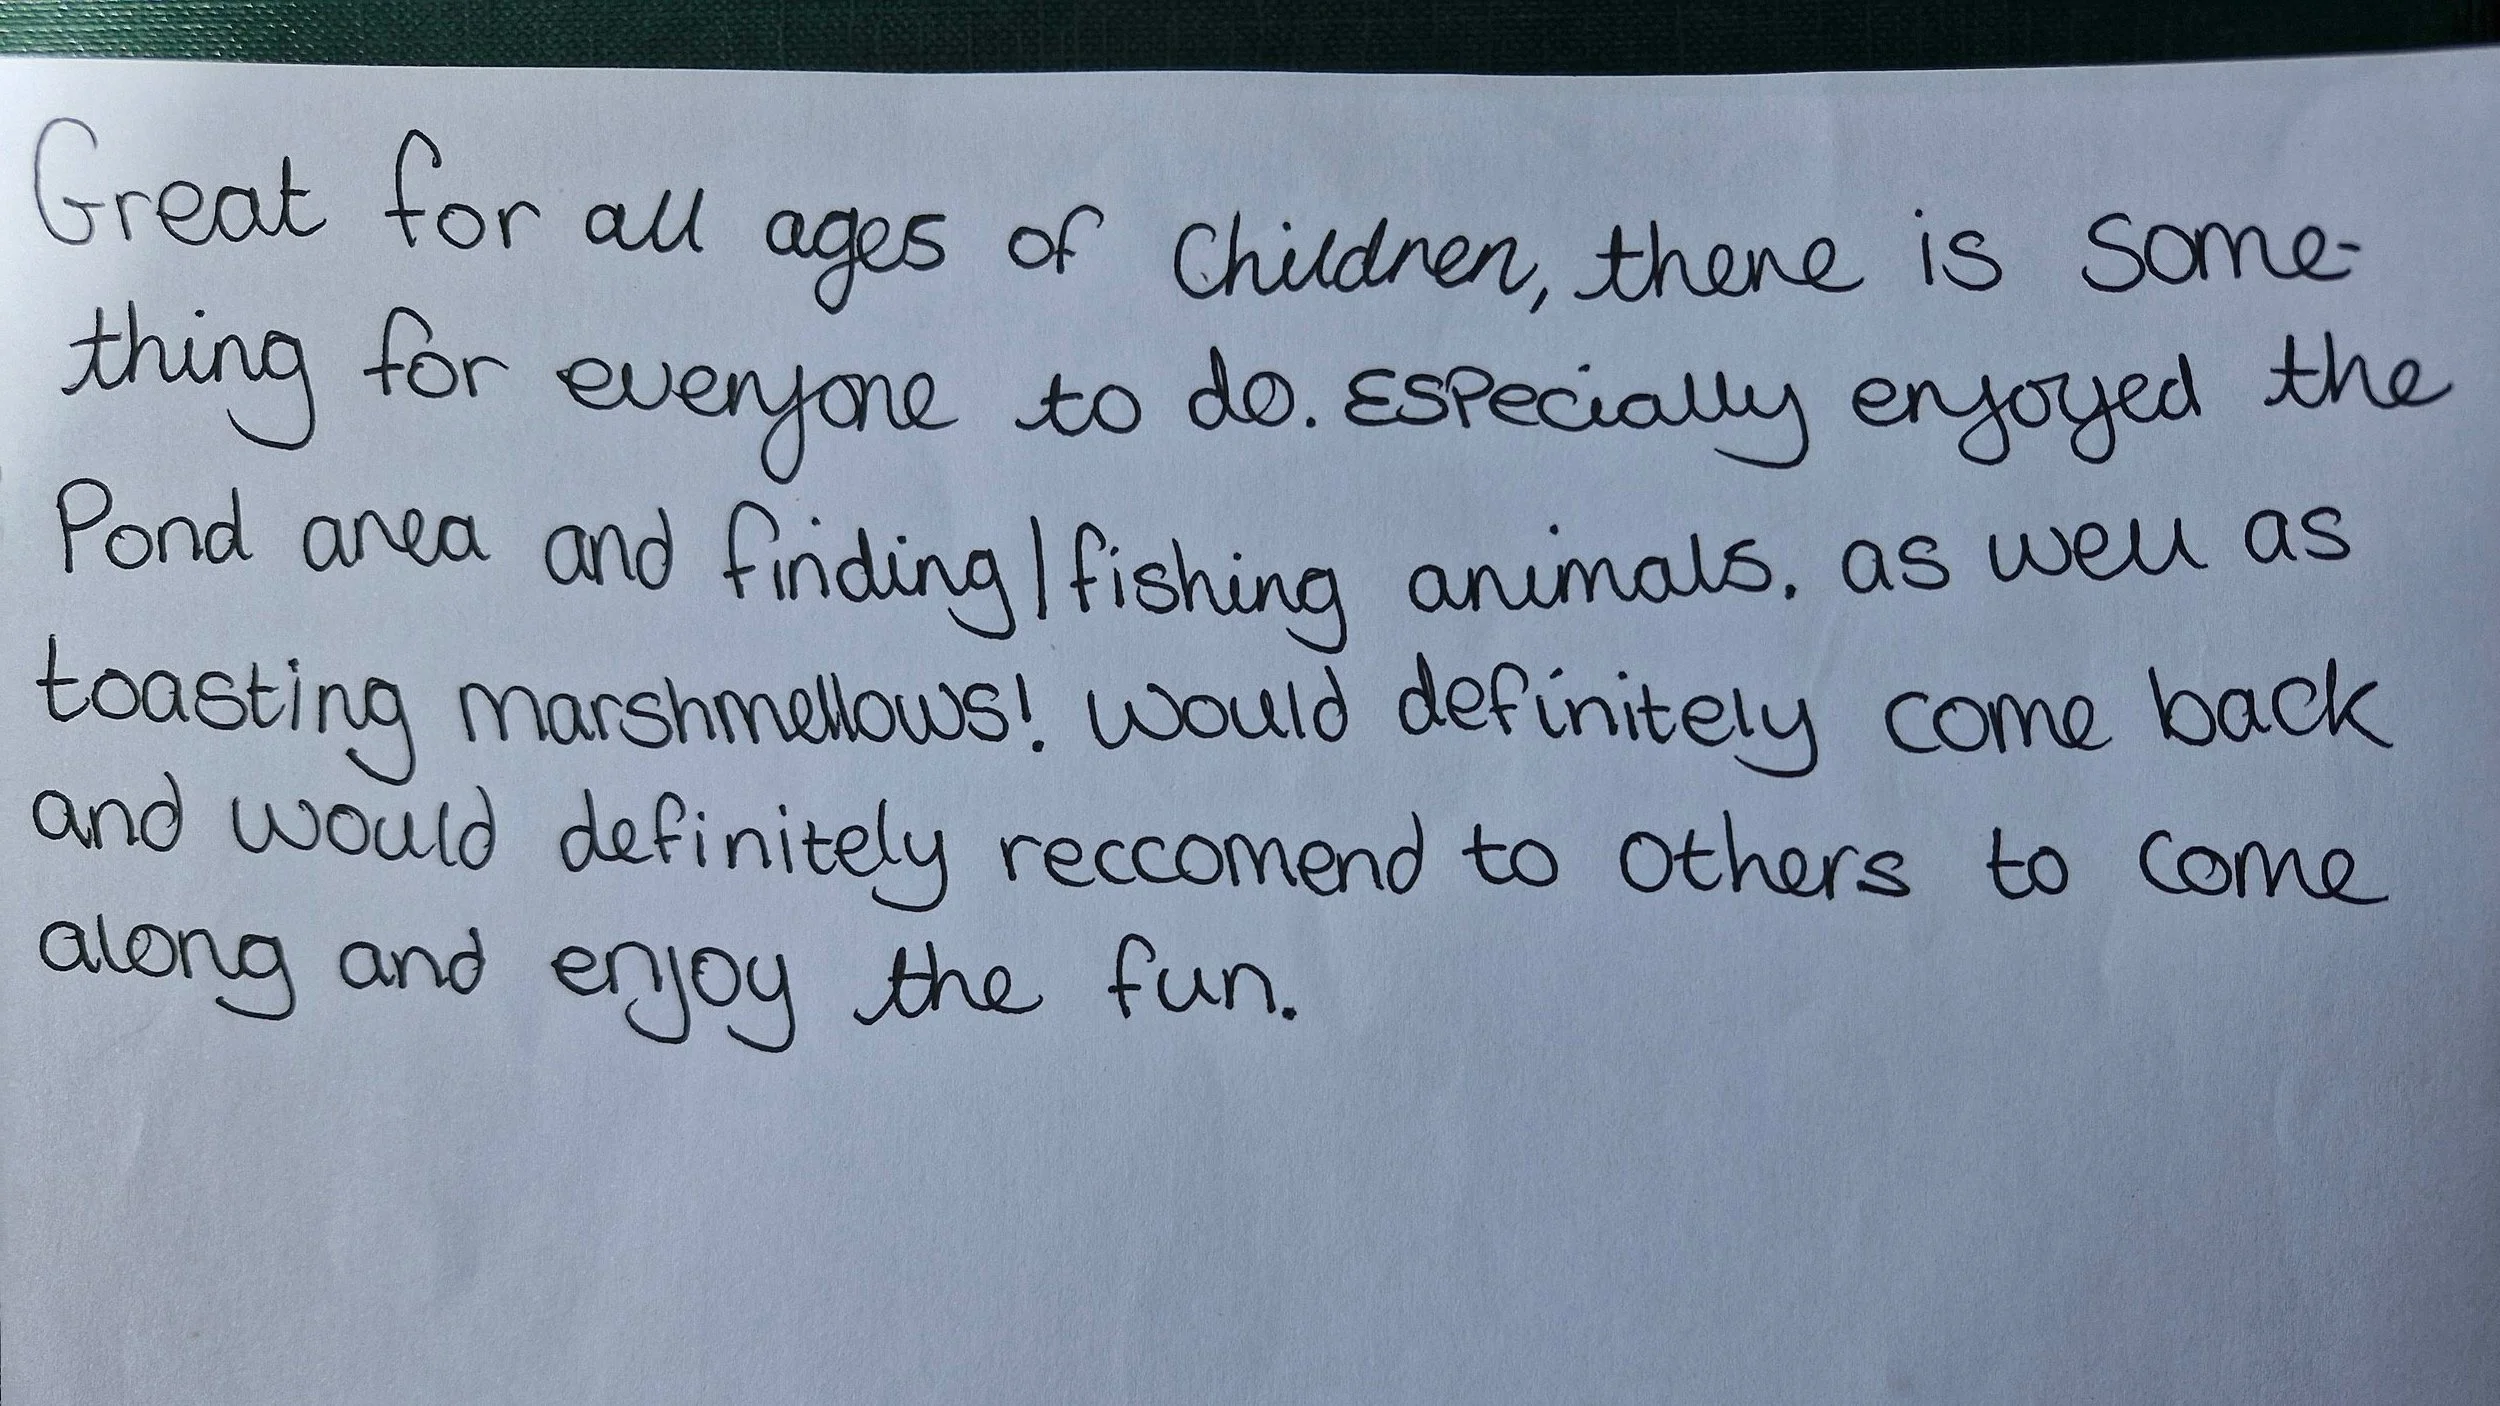 Great for all ages of Children, there is some-
thing for everyone to do. Especially enjoyed the
Pond area and finding/fishing animals. as well as
toasting marshmellows! Would definitely come back
and would definitely reccomend to others to come
along and enjoy the fun.